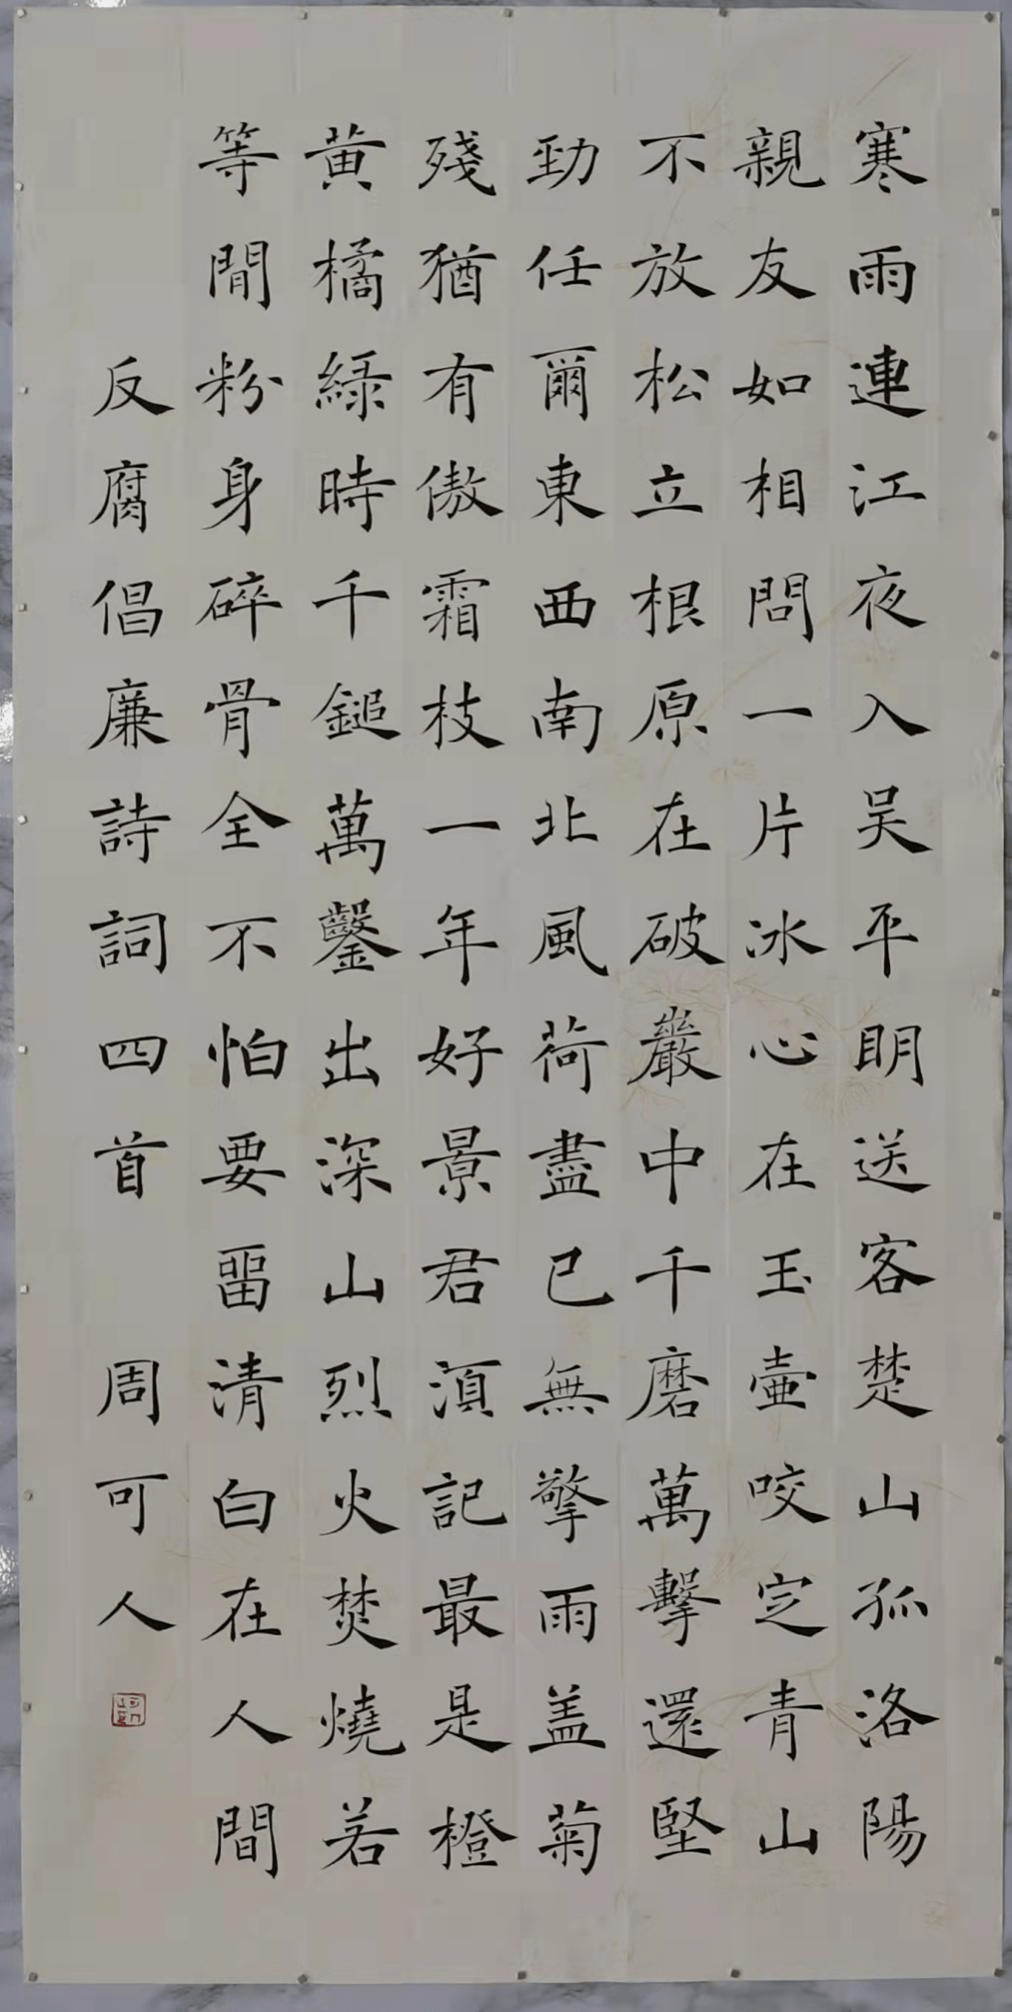 寒雨連江夜入吴平明送客楚山孤洛陽
親友如相問一片冰心在玉壷咬定青山
不放松立根原在破巖中千磨萬擊還堅
勁任爾東西南北風荷盡已無擎雨盖菊
殘猶有傲霜枝一年好景君須記最是橙
黄橘緑時千鎚萬鑿出深山烈火焚燒若
等閒粉身碎骨全不怕要畱清白在人間
反腐倡廉詩詞四首 周可人